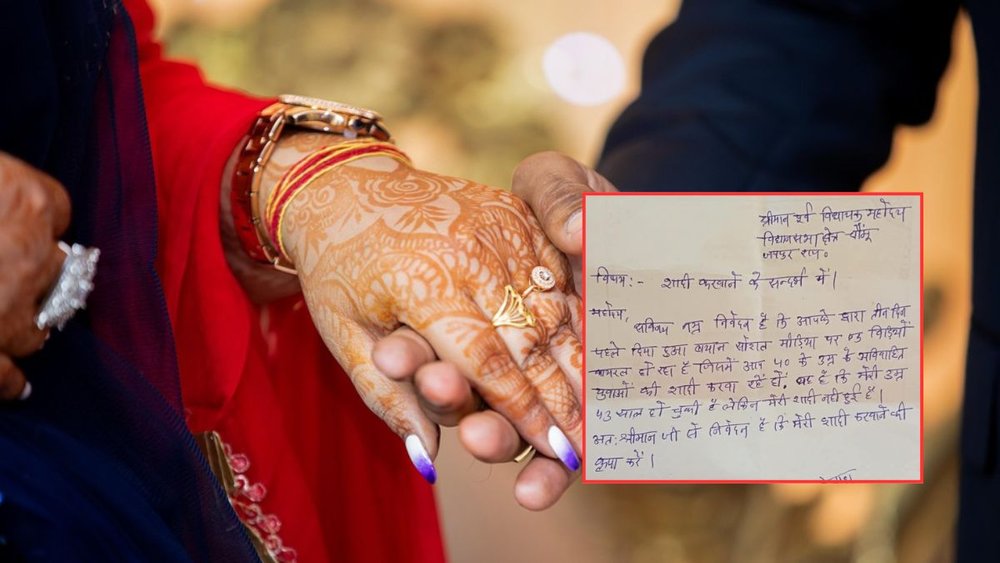 श्रीमान पूर्व विधायक महोदय
विधानसभा क्षेत्र चौंमू
जयपुर राज०
विषय:- शादी करवाने के सन्दर्भ में।
महोदय,
सविनय नम्र निवेदन है कि आपके द्वारा तीन दिन
पहले दिया हुआ बयान सोशल मीडिया पर 03 विडियों
वायरल हो रहा है जिसमें आप 40 के उम्र के अविवाहित
युवाओं की शादी करवा रहें हों, यह है कि मेरी उम्र
43 साल हो चुकी है लेकिन मेरी शादी नही हुई है।
अतः श्रीमान जी से निवेदन है कि मेरी शादी करवाने की
कृपा करें।